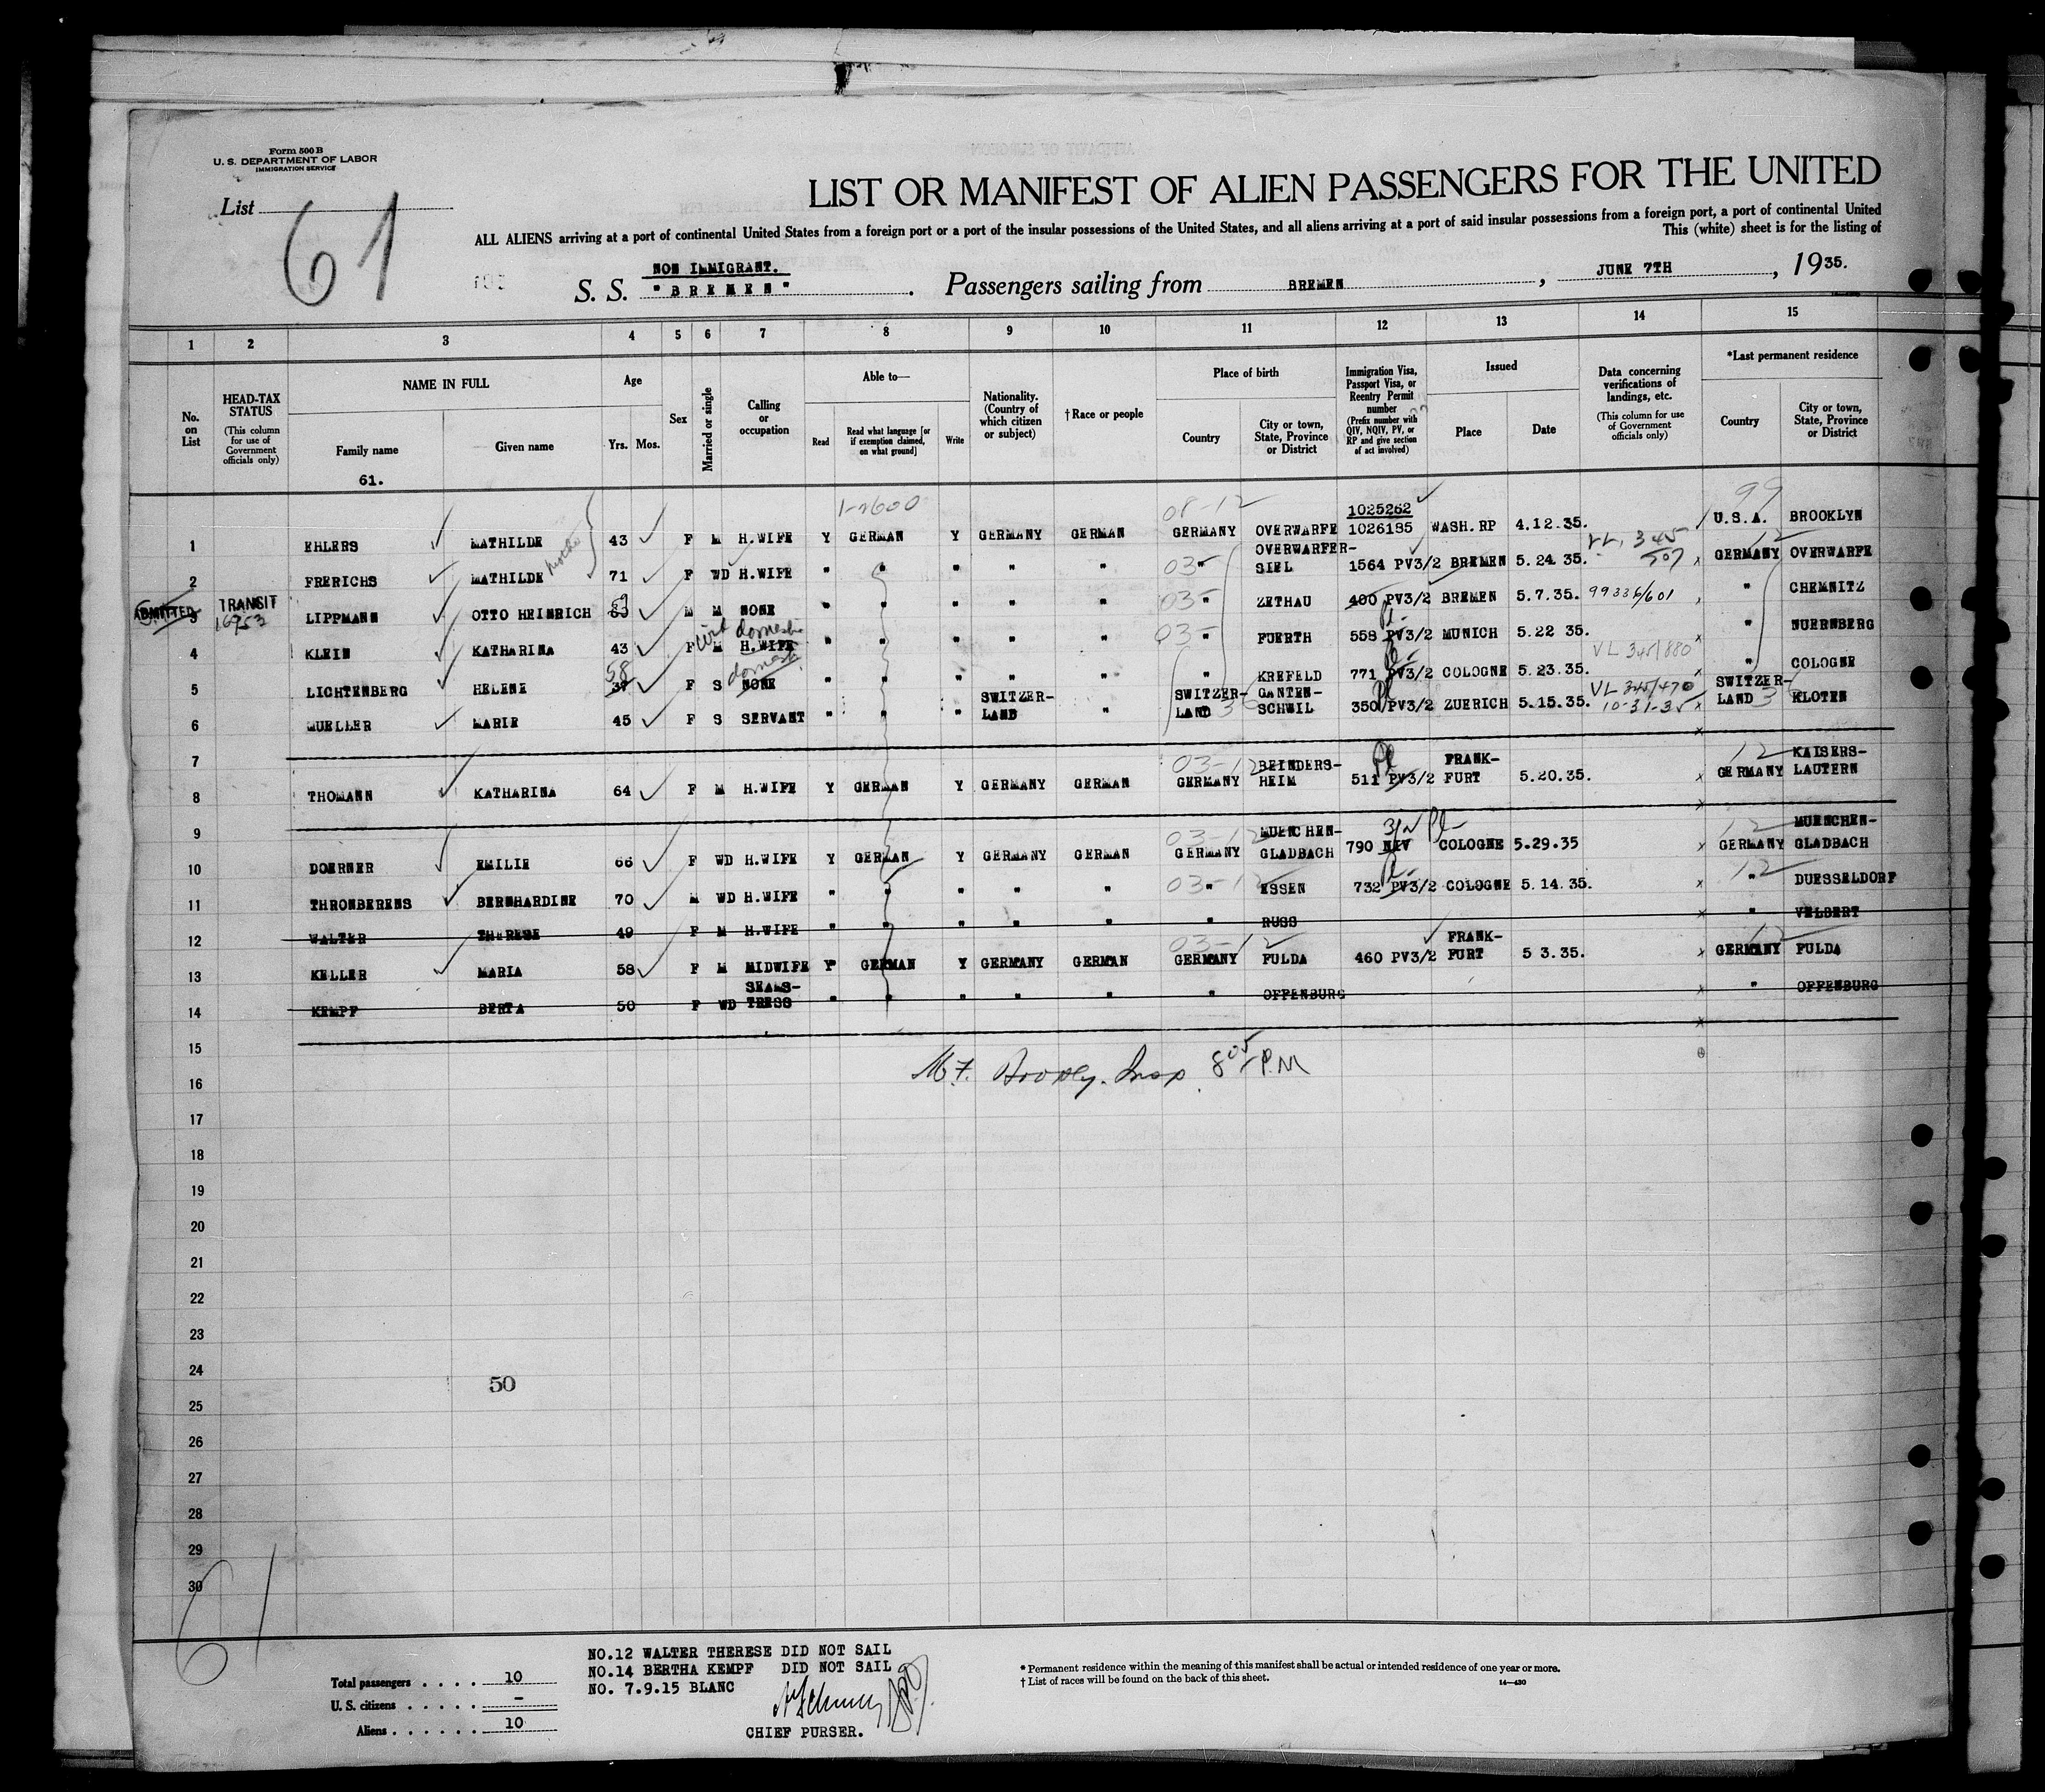 Form 500 B
U. S. DEPARTMENT OF LABOR
IMMIGRATION SERVICE
List 61
LIST OR MANIFEST OF ALIEN PASSENGERS FOR THE UNITED
ALL ALIENS arriving at a port of continental United States from a foreign port or a port of the insular possessions of the United States, and all aliens arriving at a port of said insular possessions from a foreign port, a port of continental United
This (white) sheet is for the listing of
NON IMMIGRANT.
S. S. "BREMEN". Passengers sailing from BREMEN, JUNE 7TH, 1935.
1 2 3 4 5 6 7 8 9 10 11 12 13 14 15
No. on List
HEAD-TAX STATUS (This column for use of Government officials only)
NAME IN FULL
Family name
Given name
61.
Age
Yrs. Mos.
Sex
Married or single
Calling or occupation
Able to—
Read
Read what language [or if exemption claimed, on what ground]
Write
Nationality. (Country of which citizen or subject)
†Race or people
Place of birth
Country
City or town, State, Province or District
Immigration Visa, Passport Visa, or Reentry Permit number (Prefix number with QIV, NQIV, PV, or RP and give section of act involved)
Issued
Place
Date
Data concerning verifications of landings, etc. (This column for use of Government officials only)
*Last permanent residence
Country
City or town, State, Province or District
1-2600 08-12 1025262 99
1 EHLERS MATHILDE 43 F M H.WIFE Y GERMAN Y GERMANY GERMAN GERMANY OVERWARFE 1026185 WASH.RP 4.12.35. U.S.A. BROOKLYN
2 FRERICHS MATHILDE mother 71 F WD H.WIFE " " " " " 03- OVERWARFER-SIEL 1564 PV3/2 BREMEN 5.24.35. 345/507 GERMANY 12 OVERWARFE
ADMITTED 3 TRANSIT 16953 LIPPMANN OTTO HEINRICH M M NONE " " " " " 03- " ZETHAU 400 PV3/2 BREMEN 5.7.35. 99336/601 " CHEMNITZ
4 KLEIN KATHARINA 43 F M domestic H.WIFE " " " " " 03- " FUERTH 558 PV3/2 MUNICH 5.22 35. " NUERNBERG
5 LICHTENBERG HELENE 58 37 F S domestic NONE " " " " " " KREFELD 771 PV3/2 COLOGNE 5.23.35. VL 345/880 " COLOGNE
6 MUELLER MARIE 45 F S SERVANT " " " SWITZER-LAND " SWITZER-LAND GANTEN-SCHWIL 350 PV3/2 ZUERICH 5.15.35. VL 345/470 10-31-35 SWITZER-LAND KLOTEN
7
8 THOMANN KATHARINA 64 F M H.WIFE Y GERMAN Y GERMANY GERMAN 03-12 GERMANY BEINDERS-HEIM 511 PV3/2 FRANK-FURT 5.20.35. 12 GERMANY KAISERS-LAUTERN
9
10 DOERNER EMILIE 66 F WD H.WIFE Y GERMAN Y GERMANY GERMAN 03-12 GERMANY MUENCHEN-GLADBACH 790 NIV COLOGNE 5.29.35 12 GERMANY MUENCHEN-GLADBACH
11 THRONBERENS BERNHARDINE 70 M WD H.WIFE " " " " " 03-12 " ESSEN 732 PV3/2 COLOGNE 5.14.35. 12 " DUESSELDORF
12 WALTER THERESE 49 F M H.WIFE " " " " " " RUSS " VELBERT
13 KELLER MARIA 58 F M MIDWIFE Y GERMAN Y GERMANY GERMAN 03-12 GERMANY FULDA 460 PV3/2 FRANK-FURT 5 3.35. 12 GERMANY FULDA
14 KEMPF BERTA 50 F WD SEAMS-TRESS " " " " " " OFFENBURG " OFFENBURG
15
16 Insp. 8 05 P.M
17
18
19
20
21
22
23
24
50
25
26
27
28
29
30
61
NO.12 WALTER THERESE DID NOT SAIL
NO.14 BERTHA KEMPF DID NOT SAIL
NO. 7.9.15 BLANC
CHIEF PURSER.
Total passengers . . . . 10
U. S. citizens . . . . . –
Aliens . . . . . . 10
* Permanent residence within the meaning of this manifest shall be actual or intended residence of one year or more.
† List of races will be found on the back of this sheet.
14—430